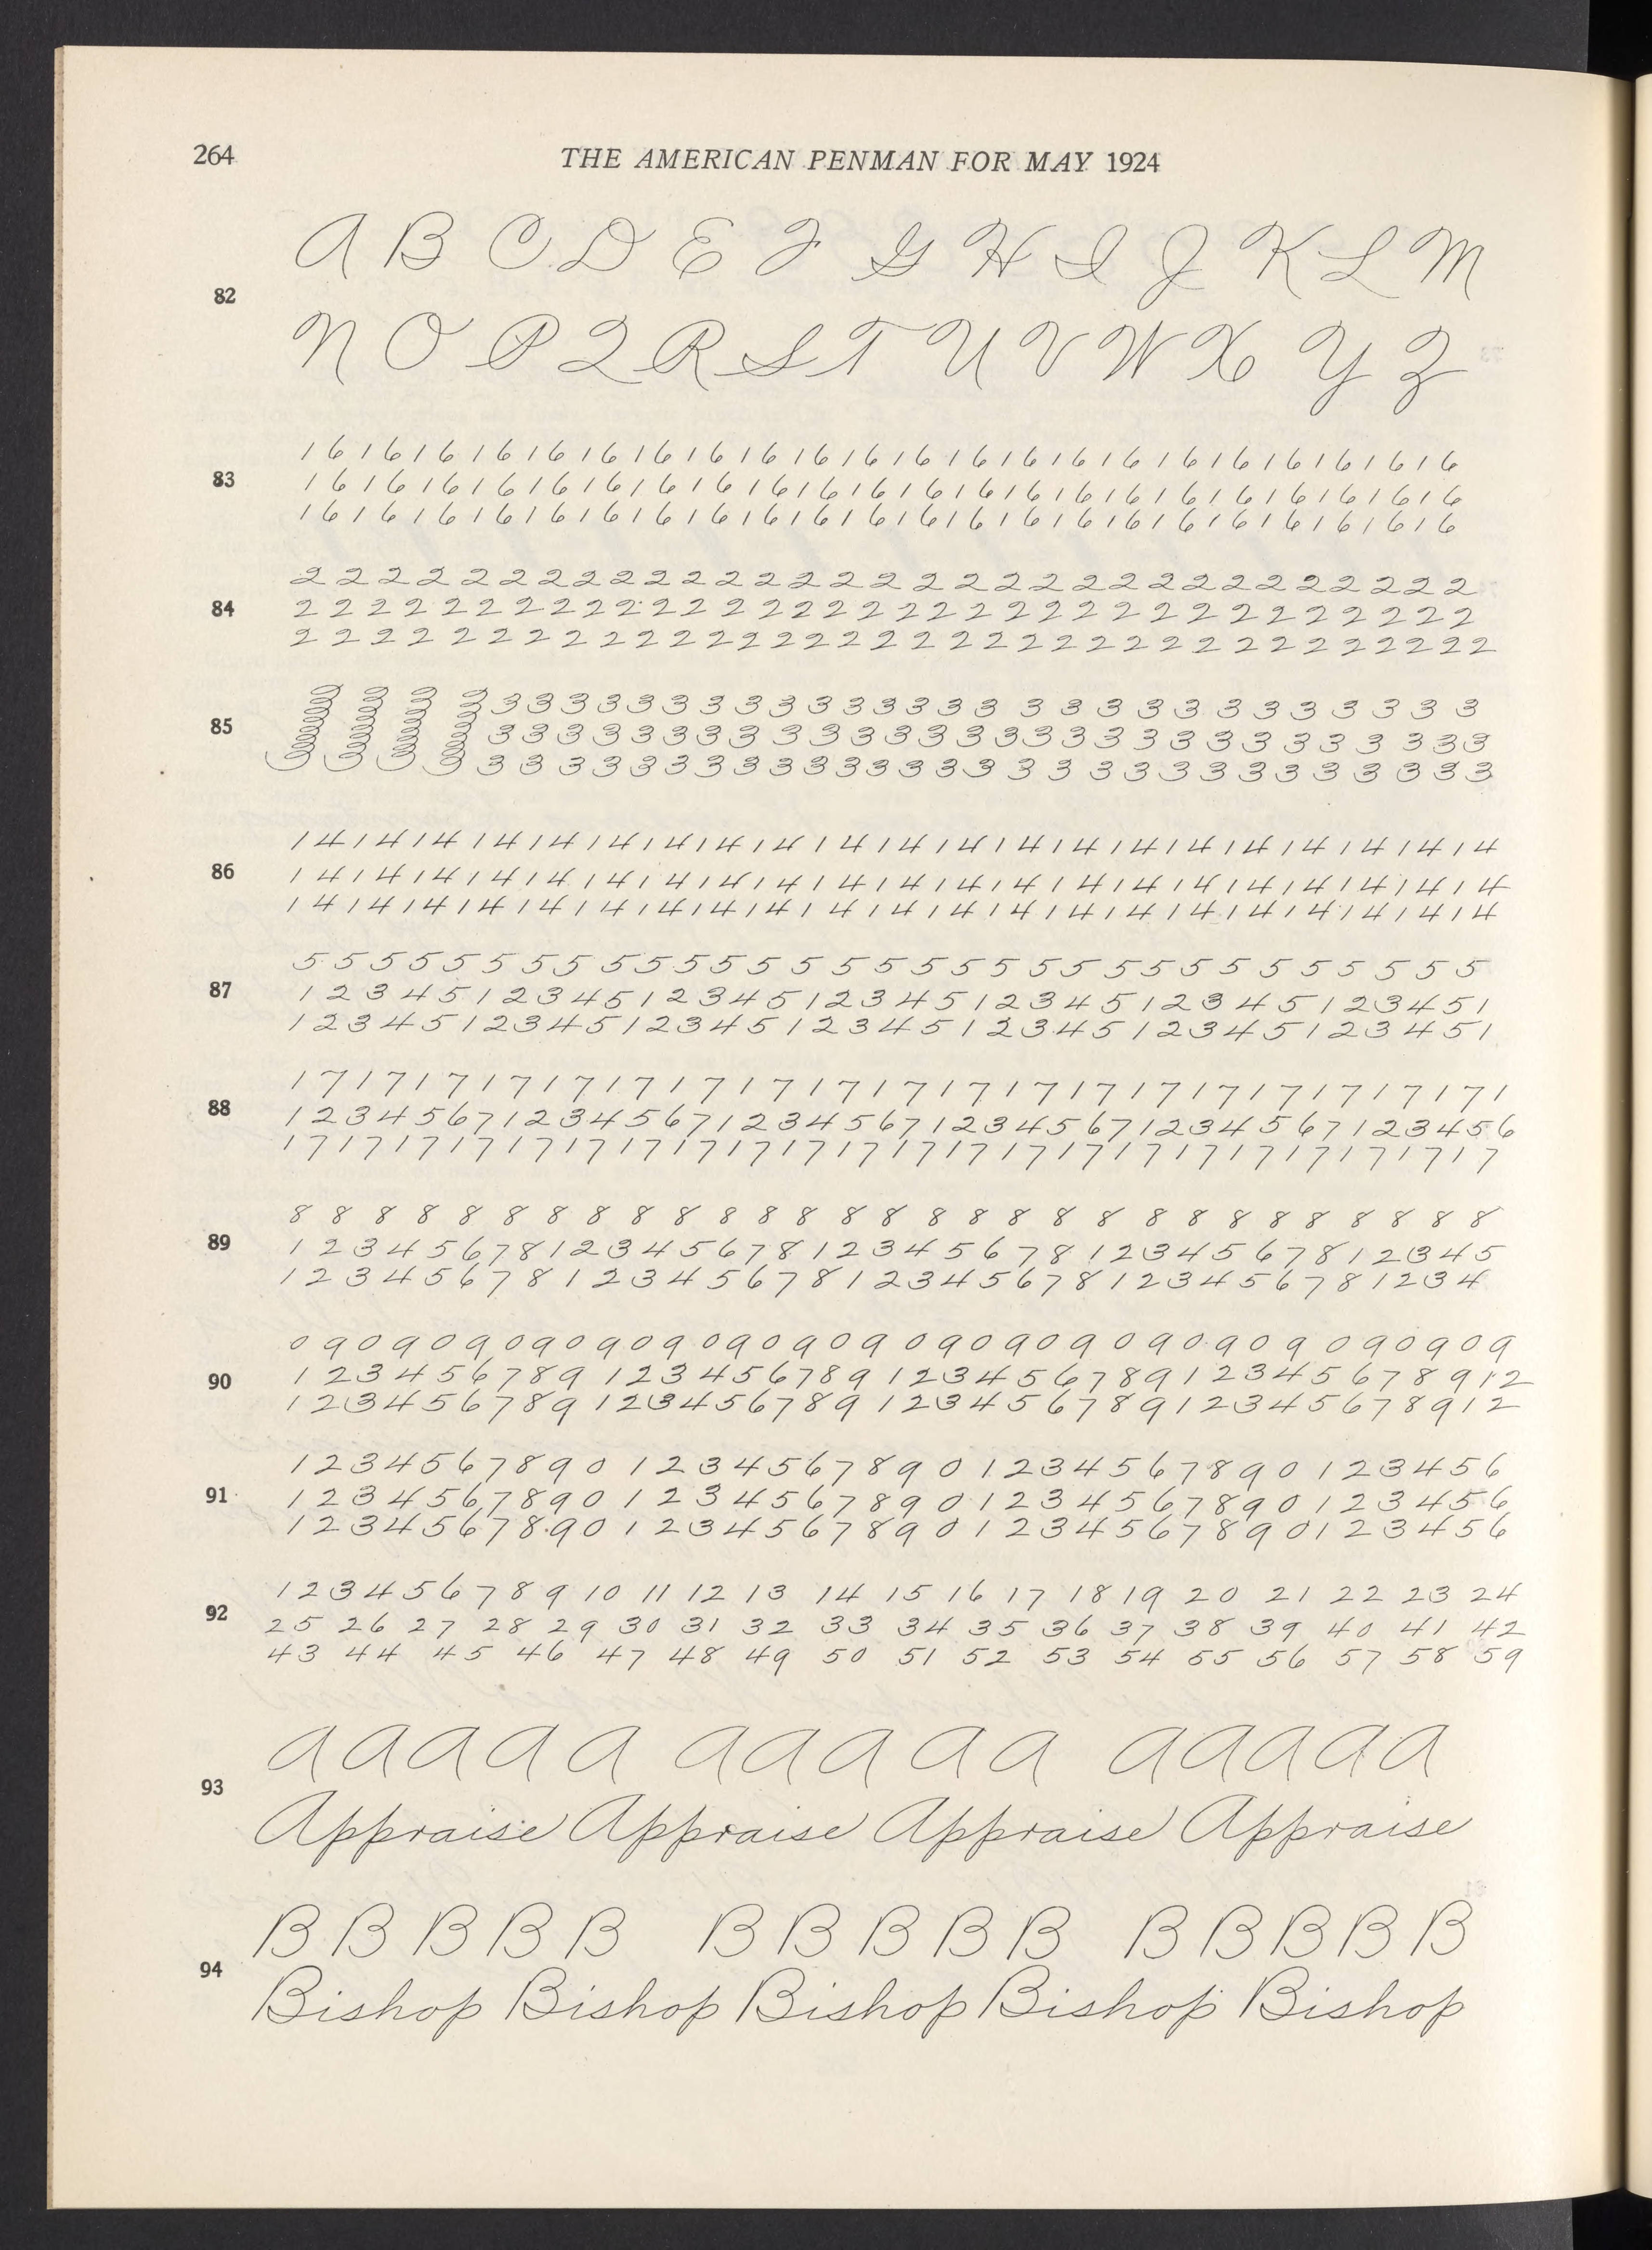 264
THE AMERICAN PENMAN FOR MAY 1924
A B C D E F G H I J K L M
82
N O P Q R S T U V W X Y Z
1 6 1 6 1 6 1 6 1 6 1 6 1 6 1 6 1 6 1 6 1 6 1 6 1 6 1 6 1 6 1 6 1 6 1 6 1 6 1 6 1 6 1 6
83
1 6 1 6 1 6 1 6 1 6 1 6 1 6 1 6 1 6 1 6 1 6 1 6 1 6 1 6 1 6 1 6 1 6 1 6 1 6 1 6 1 6 1 6
1 6 1 6 1 6 1 6 1 6 1 6 1 6 1 6 1 6 1 6 1 6 1 6 1 6 1 6 1 6 1 6 1 6 1 6 1 6 1 6 1 6 1 6
2 2 2 2 2 2 2 2 2 2 2 2 2 2 2 2 2 2 2 2 2 2 2 2 2 2 2 2 2 2 2
84
2 2 2 2 2 2 2 2 2 2 2 2 2 2 2 2 2 2 2 2 2 2 2 2 2 2 2 2 2 2 2 2 2
2 2 2 2 2 2 2 2 2 2 2 2 2 2 2 2 2 2 2 2 2 2 2 2 2 2 2 2 2 2 2 2 2 2
3 3 3 3 3 3 3 3 3 3 3 3 3 3 3 3 3 3 3 3 3 3 3 3 3 3 3
85
3 3 3 3 3 3 3 3 3 3 3 3 3 3 3 3 3 3 3 3 3 3 3 3 3 3 3 3
3 3 3 3 3 3 3 3 3 3 3 3 3 3 3 3 3 3 3 3 3 3 3 3 3 3 3 3
1 4 1 4 1 4 1 4 1 4 1 4 1 4 1 4 1 4 1 4 1 4 1 4 1 4 1 4 1 4 1 4 1 4 1 4 1 4 1 4 1 4
86
1 4 1 4 1 4 1 4 1 4 1 4 1 4 1 4 1 4 1 4 1 4 1 4 1 4 1 4 1 4 1 4 1 4 1 4 1 4 1 4 1 4
1 4 1 4 1 4 1 4 1 4 1 4 1 4 1 4 1 4 1 4 1 4 1 4 1 4 1 4 1 4 1 4 1 4 1 4 1 4 1 4 1 4
5 5 5 5 5 5 5 5 5 5 5 5 5 5 5 5 5 5 5 5 5 5 5 5 5 5 5 5 5 5 5
87
1 2 3 4 5 1 2 3 4 5 1 2 3 4 5 1 2 3 4 5 1 2 3 4 5 1 2 3 4 5 1 2 3 4 5 1
1 2 3 4 5 1 2 3 4 5 1 2 3 4 5 1 2 3 4 5 1 2 3 4 5 1 2 3 4 5 1 2 3 4 5 1
1 7 1 7 1 7 1 7 1 7 1 7 1 7 1 7 1 7 1 7 1 7 1 7 1 7 1 7 1 7 1 7 1 7 1 7 1 7 1
88
1 2 3 4 5 6 7 1 2 3 4 5 6 7 1 2 3 4 5 6 7 1 2 3 4 5 6 7 1 2 3 4 5 6 7 1 2 3 4 5 6
1 7 1 7 1 7 1 7 1 7 1 7 1 7 1 7 1 7 1 7 1 7 1 7 1 7 1 7 1 7 1 7 1 7 1 7 1 7 1 7 1 7 1 7
8 8 8 8 8 8 8 8 8 8 8 8 8 8 8 8 8 8 8 8 8 8 8 8 8 8 8 8 8
89
1 2 3 4 5 6 7 8 1 2 3 4 5 6 7 8 1 2 3 4 5 6 7 8 1 2 3 4 5 6 7 8 1 2 3 4 5
1 2 3 4 5 6 7 8 1 2 3 4 5 6 7 8 1 2 3 4 5 6 7 8 1 2 3 4 5 6 7 8 1 2 3 4
0 9 0 9 0 9 0 9 0 9 0 9 0 9 0 9 0 9 0 9 0 9 0 9 0 9 0 9 0 9 0 9 0 9 0 9
90
1 2 3 4 5 6 7 8 9 1 2 3 4 5 6 7 8 9 1 2 3 4 5 6 7 8 9 1 2 3 4 5 6 7 8 9 1 2
1 2 3 4 5 6 7 8 9 1 2 3 4 5 6 7 8 9 1 2 3 4 5 6 7 8 9 1 2 3 4 5 6 7 8 9 1 2
1 2 3 4 5 6 7 8 9 0 1 2 3 4 5 6 7 8 9 0 1 2 3 4 5 6 7 8 9 0 1 2 3 4 5 6
91
1 2 3 4 5 6 7 8 9 0 1 2 3 4 5 6 7 8 9 0 1 2 3 4 5 6 7 8 9 0 1 2 3 4 5 6
1 2 3 4 5 6 7 8 9 0 1 2 3 4 5 6 7 8 9 0 1 2 3 4 5 6 7 8 9 0 1 2 3 4 5 6
1 2 3 4 5 6 7 8 9 10 11 12 13 14 15 16 17 18 19 20 21 22 23 24
92
25 26 27 28 29 30 31 32 33 34 35 36 37 38 39 40 41 42
43 44 45 46 47 48 49 50 51 52 53 54 55 56 57 58 59
A A A A A A A A A A A A A A A
93
Appraise Appraise Appraise Appraise
B B B B B B B B B B B B B B B
94
Bishop Bishop Bishop Bishop Bishop